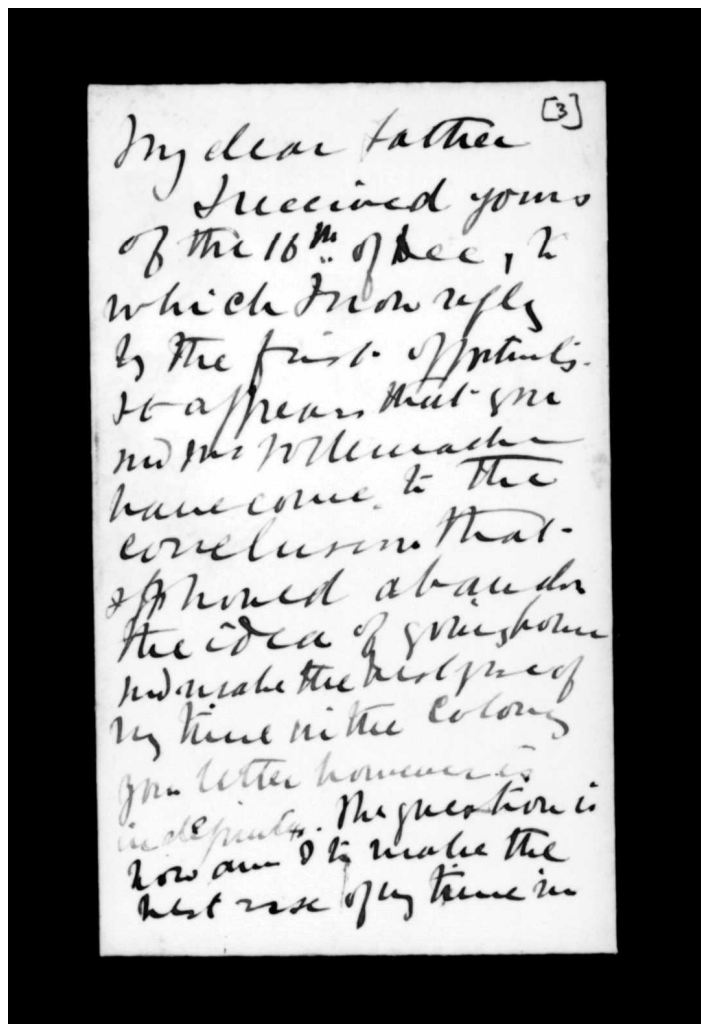 [3]
My dear Father
I received yours
of the 16th of Dec, to
which I now reply
by the first opportunity.
It appears that you
and Mr Tollemache
have come to the
conclusion that
I should abandon
the idea of going home
and make the best use of
my time in the Colony
your letter however is
indefinite. The question is
how am I to make the
best use of my time in